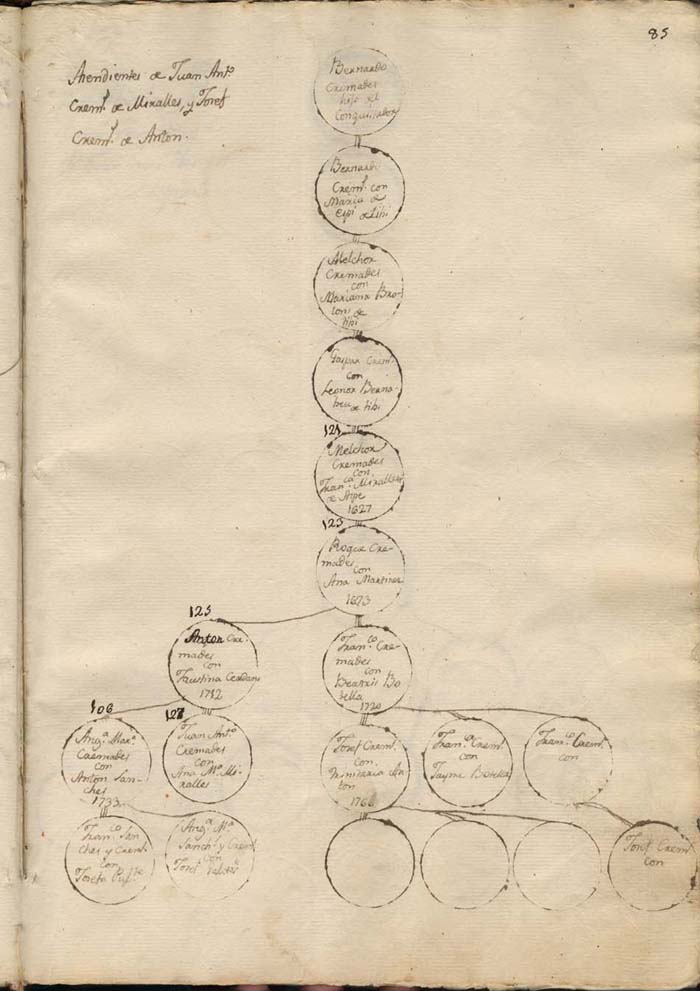 85
Atendientes de Juan Antº
Creml de Miralles, y Josef
Creml de Anton.
Bernardo
Cremades
hijo del
Conquistador
Bernardo
Creml con
Maria de
Espi de tibi
Melchor
Cremades
con
Mariana Bro-
tons de
tibi
Gaspar Creml
con
Leonor Berna-
beu de tibi
121
Melchor
Cremades
con
Franca Miralles
de Aspe
1627
123
Roque Cre-
mades
con
Ana Martinez
1673
125
Anton Cre-
mades
con
Faustina Cerdan
1712
Franco Cre-
mades
con
Beatris Bo
tella
1720
106
Anga Mara
Cremades
con
Anton San-
ches
1733
127
Juan Antº
Cremades
con
Ana Mª Mi-
ralles
Josef Creml
con
An-
ton
176
Franca Creml
con
Jayme Botella
Franco Creml
con
Franco San
ches y Creml
con
Anga Mª
Sanchs y Creml
con
Josef
Josef Creml
con